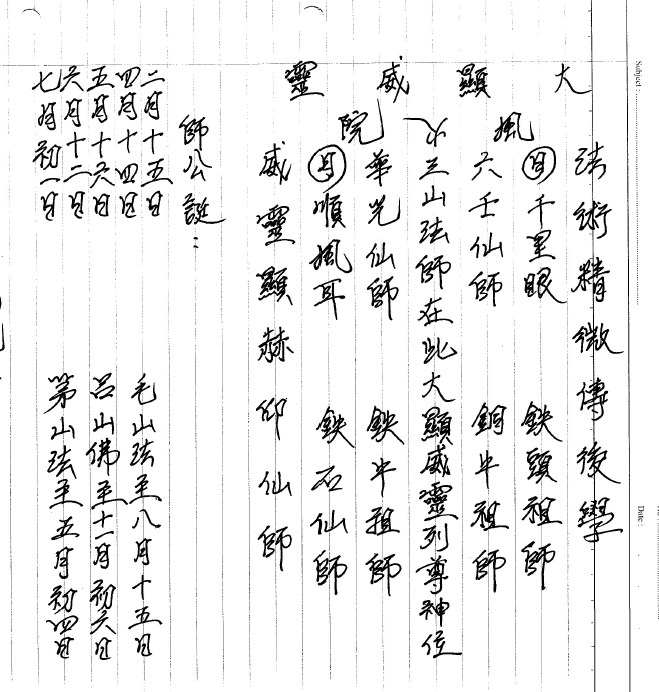 Subject :
Date :
大 顯 威 靈
法術精微傳後學
風
㊐千里眼 鉄頭祖師
六壬仙師 銅牛祖師
三山法師在此大顯威靈列尊神位
院
華光仙師 鉄牛祖師
㊊順風耳 鉄石仙師
威靈顯赫仰仙師
師公誕：
二月十五日
四月十四日
五月十六日
六月十二日
七月初一日
毛山法主八月十五日
呂山佛主十一月初六日
第山法主五月初四日